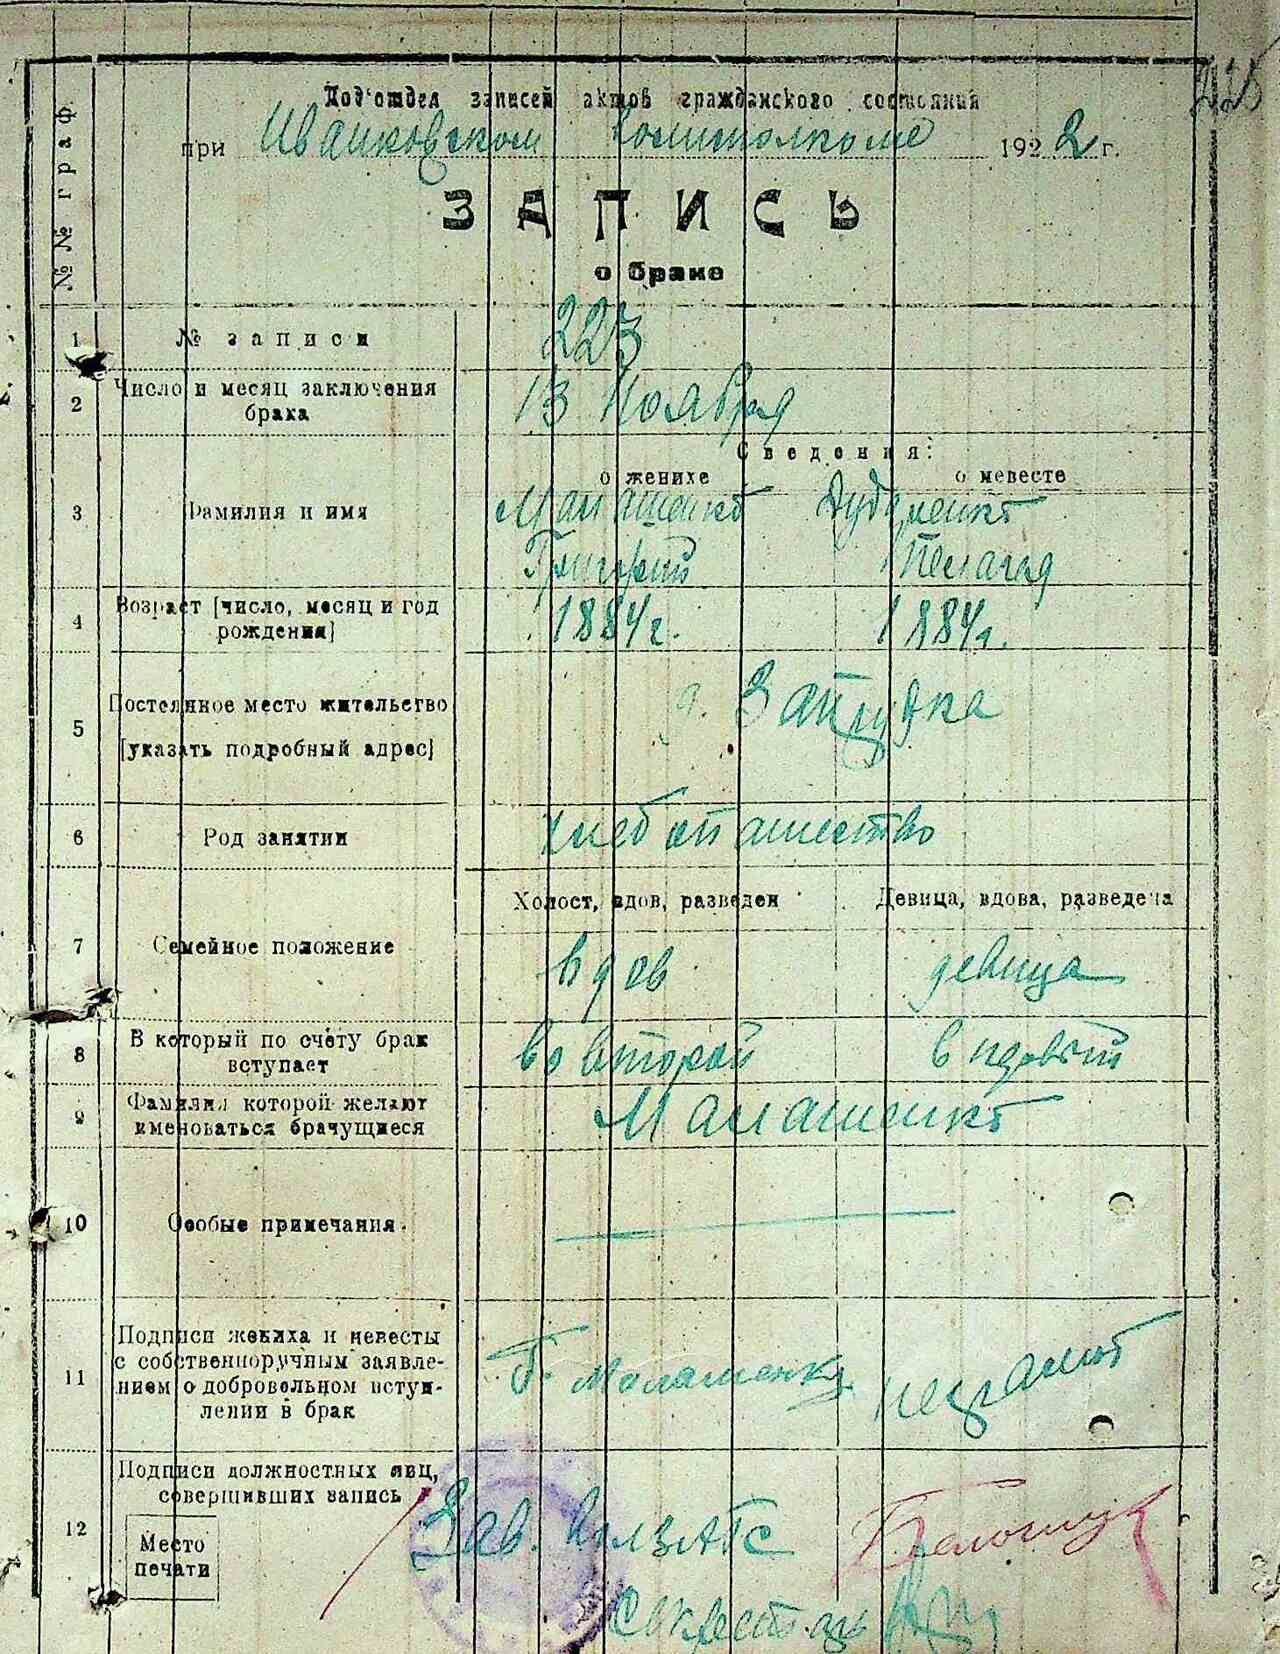 Под'отдел записей актов гражданского состояния
при Иванковском Волисполкоме 1922 г.
ЗАПИСЬ
о браке
№ № граф
1 № записи 223
2 Число и месяц заключения брака 13 Ноября
Сведения:
о женихе о невесте
3 Фамилия и имя Малашенко
Григорий Пелагея
4 Возраст [число, месяц и год рождения] 1884 г. 1884 г.
5 Постоянное место жительство [указать подробный адрес] д.
6 Род занятии хлебопашество
Холост, вдов, разведен Девица, вдова, разведена
7 Семейное положение вдов девица
8 В который по счету брак вступает во второй в первый
9 Фамилия которой желают именоваться брачущиеся Малашенко
10 Особые примечания.
11 Подписи жениха и невесты
с собственноручным заявле-
нием о добровольном вступ-
лении в брак Г. Малашенко неграмот
12 Подписи должностных лиц,
совершивших запись
Место
печати
Зав. ВолЗАГС
Секретарь